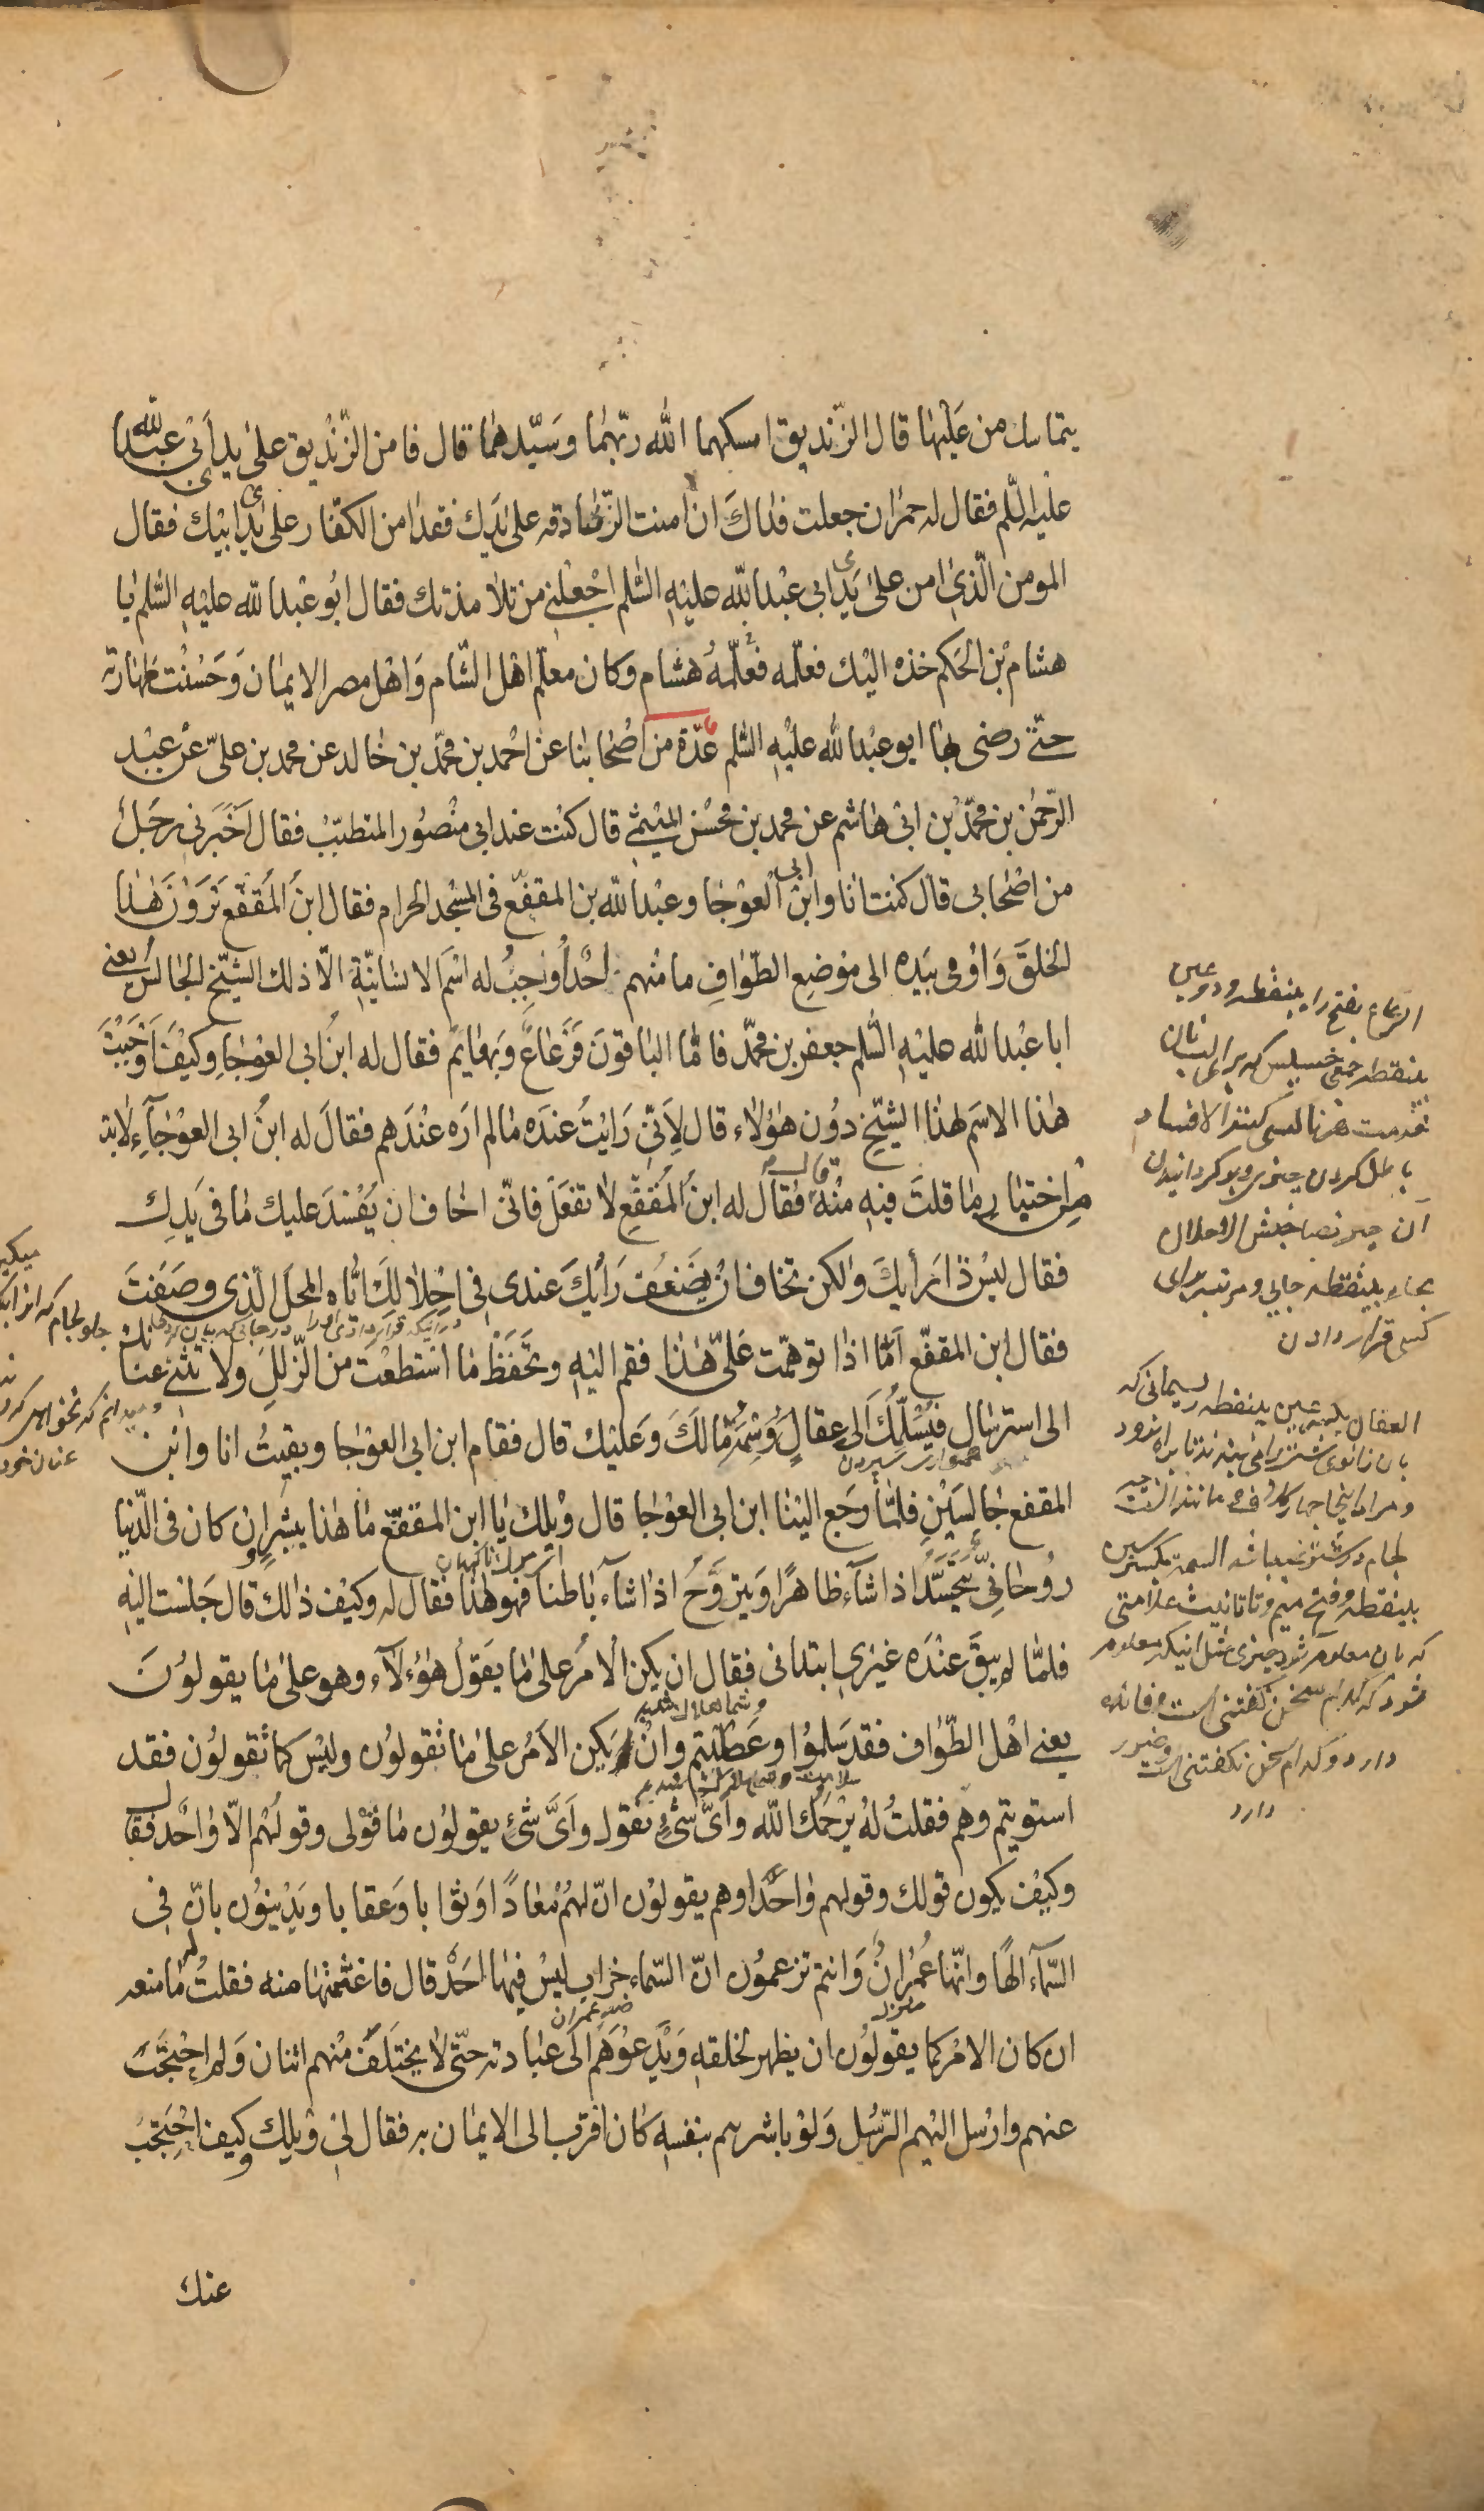 يتماسك من عليها قال الزّنديق امسكهما الله ربّهما وسيّدهما قال فامن الزّنديق على يد ابى عبد الله
عليه السّلم فقال له حمران جعلت فداك ان امنت الزّنادقه على يديك فقد امن الكفّار على يدى ابيك فقال
المومن الّذى امن على يدى ابى عبد الله عليه السّلم اجعلنى من تلامذتك فقال ابو عبد الله عليه السّلم يا
هشام بن الحكم خذه اليك فعلّمه فعلّمه هشام وكان معلّم اهل الشّام واهل مصر الايمان وحسنت طهارته
حتّى رضى بها ابو عبد الله عليه السّلم عدّة من اصحابنا عن احمد بن محمّد بن خالد عن محمد بن علىّ عن عبد
الرّحمن بن محمّد بن ابى هاشم عن محمد بن محسن الميثمى قال كنت عند ابى منصور المتطبّب فقال اخبرنى رجل
من اصحابى قال كنت انا وابن ابى العوجا وعبد الله بن المقفّع فى المسجد الحرام فقال ابن المقفّع ترون هذا
الخلق واومى بيده الى موضع الطّواف ما منهم احد اوجب له اسم الانسانيّة الّا ذلك الشّيخ الجالس يعنى
ابا عبد الله عليه السّلم جعفر بن محمّد فامّا الباقون فرعاع وبهايم فقال له ابن ابى العوجا وكيف اوجبت
هذا الاسم لهذا الشّيخ دون هؤلاء قال لانّى رايت عنده ما لم اره عندهم فقال له ابن ابى العوجاء لا بد
من اختيار ما قلت فيه منه قال فقال له ابن المقفّع لا تفعل فانّى اخاف ان يفسد عليك ما فى يدك
فقال ليس ذا رأيك ولكن تخاف ان يضعف رأيك عندى فى احلالك ايّاه المحلّ الّذى وصفت
فقال ابن المقفّع امّا اذا توهّمت علىّ هذا فقم اليه وتحفّظ ما استطعت من الزّلل ولا تثنى عنانك
الى استرسال فيسلّمك الى عقال وسمة ما لك وعليك قال فقام ابن ابى العوجا وبقيت انا وابن
المقفع جالسين فلمّا رجع الينا ابن ابى العوجا قال ويلك يا ابن المقفّع ما هذا ببشر وان كان فى الدّنيا
روحانىّ يتجسّد اذا شآء ظاهرا ويتروّح اذا شآء باطنا فهو هذا فقال له وكيف ذالك قال جلست اليه
فلمّا لم يبق عنده غيرى ابتدانى فقال ان يكن الامر على ما يقول هؤلآء وهو على ما يقولون
يعنى اهل الطّواف فقد سلموا وعطبتم وان يكن الامر على ما تقولون وليس كما تقولون فقد
استويتم وهم فقلت له يرحمك الله واىّ شئ نقول واىّ شئ يقولون ما قولى وقولهم الّا واحد فقال
وكيف يكون قولك وقولهم واحدا وهم يقولون انّ لهم معادا وثوابا وعقابا ويدينون بانّ فى
السّمآء الها وانّها عمران وانتم تزعمون انّ السّماء خراب ليس فيها احد قال فاغتنمتها منه فقلت له ما منعه
ان كان الامر كما يقولون ان يظهر لخلقه ويدعوهم الى عبادته حتّى لا يختلف منهم اثنان ولم احتجب
عنهم وارسل اليهم الرّسل ولو باشرهم بنفسه كان اقرب الى الايمان به فقال لى ويلك وكيف احتجب
عنك
الرعاع بفتح را بينقطه ودو عين
بينقطه جمعى خسيس كه
الافساد
باطل كردن چيزى
الاحلال
بحاء بينقطه جايى ومرتبه براى
كسى قرار دادن
العقال بكسر عين بينقطه ريسمانى كه
السمة بكسر سين
بينقطه وفتح ميم وتا تانيث علامتى
كه بان معلوم شود چيزى مثل اينكه معلوم
شود كه كدام سخن گفتنى است وفائده
دارد وكدام سخن نگفتنى است وضرر
دارد